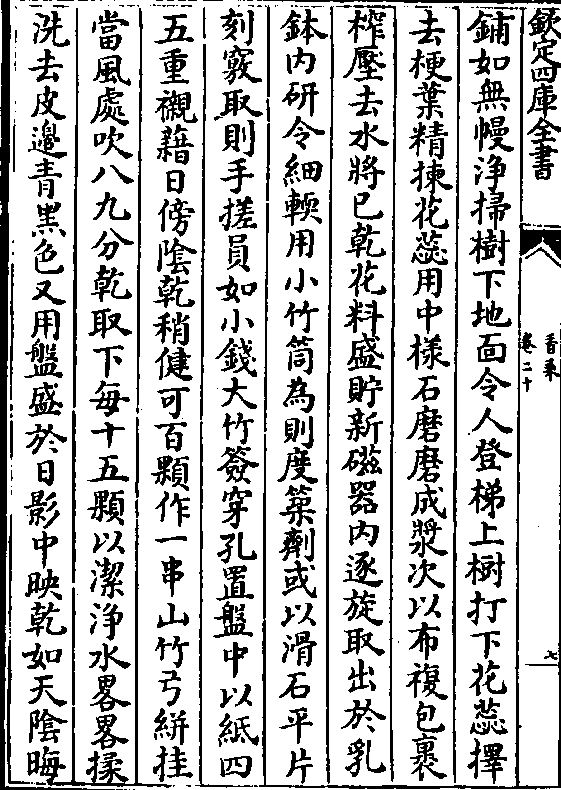 欽定四庫全書
香乘
卷二十
七
鋪如無幔浄掃樹下地面令人登梯上樹打下花蕊擇
去梗葉精揀花蕊用中様石磨磨成漿次以布複包裹
榨壓去水將已乾花料盛貯新磁器内逐旋取出於乳
鉢内研令細輭用小竹筒為則度築劑或以滑石平片
刻竅取則手搓員如小錢大竹簽穿孔置盤中以紙四
五重襯藉日傍陰乾稍健可百顆作一串山竹弓絣挂
當風處吹八九分乾取下每十五顆以潔浄水畧畧揉
洗去皮邉青黑色又用盤盛於日影中映乾如天陰晦